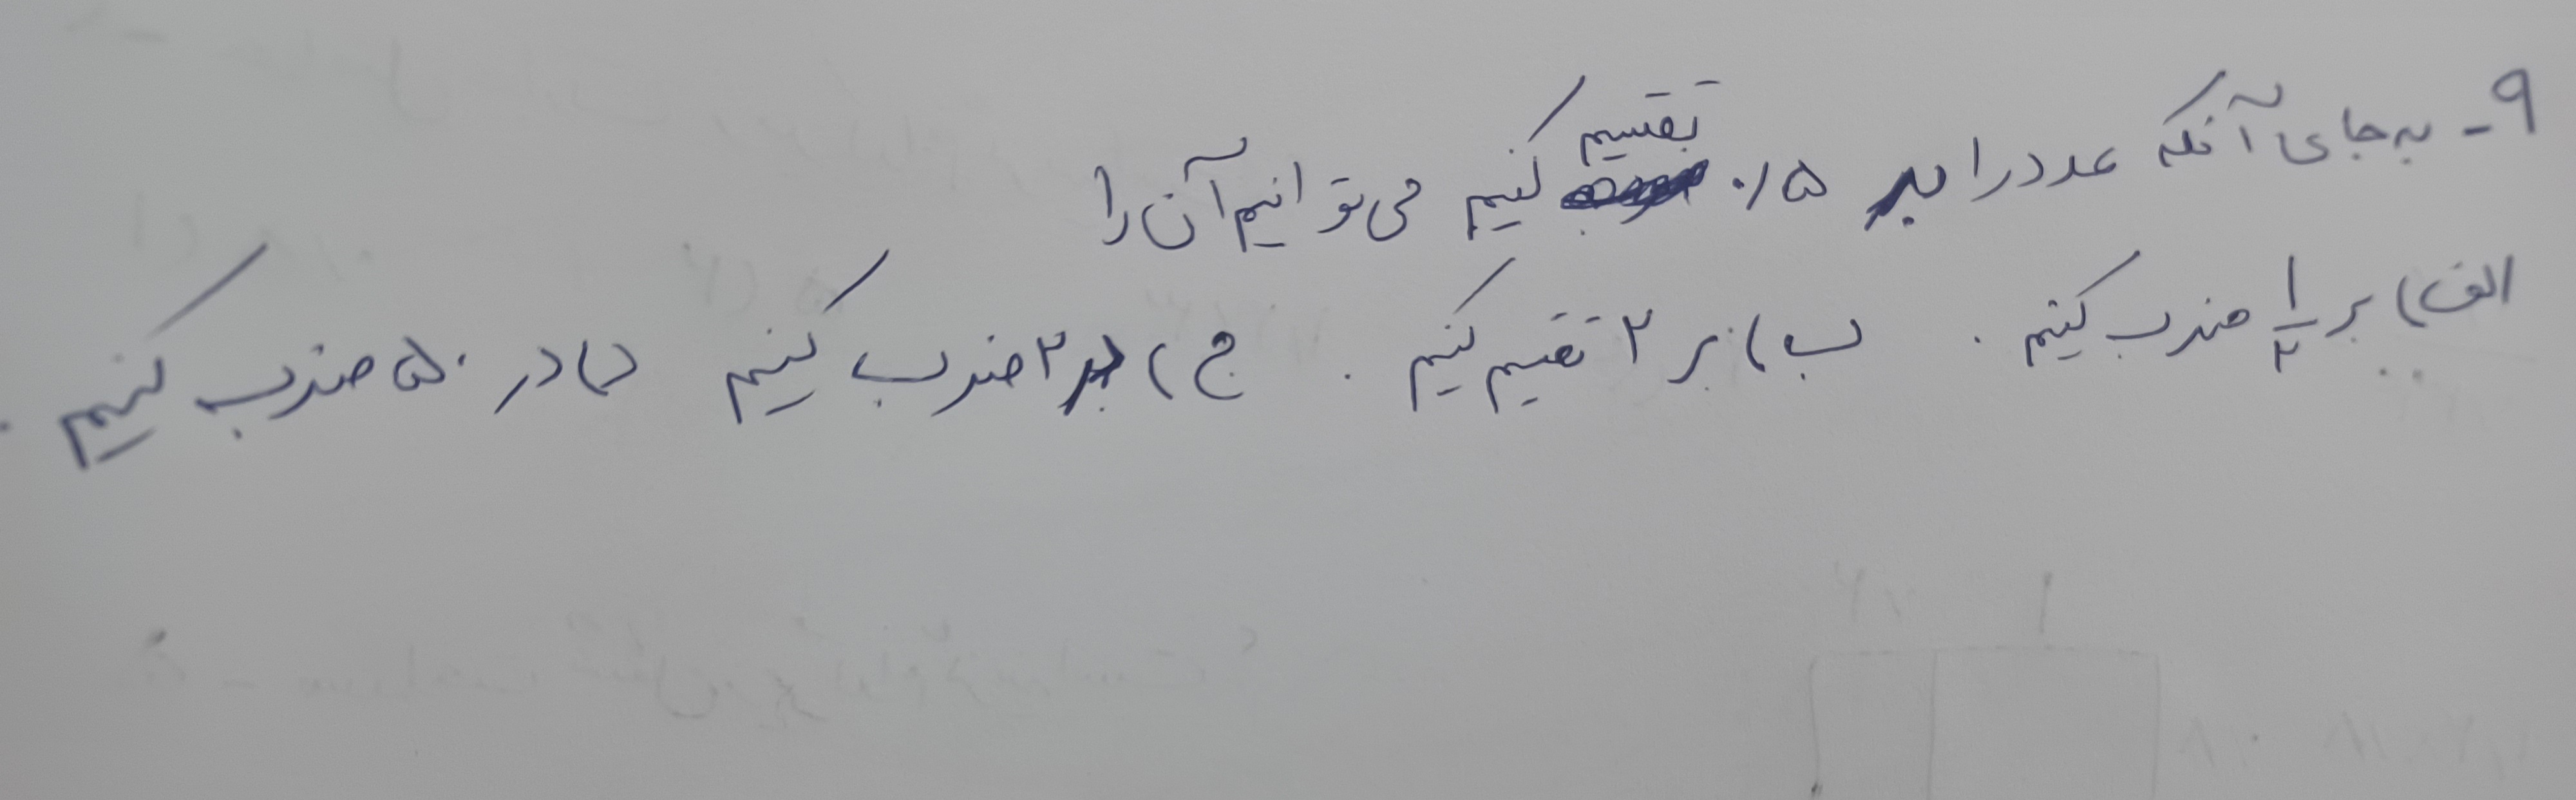 ۹- به جای آنکه عدد را بر ۰/۵ تقسیم کنیم می‌توانیم آن را
الف) بر ۱/۲ ضرب کنیم. ب) بر ۲ تقسیم کنیم. ج) در ۲ ضرب کنیم د) در ۵۰ ضرب کنیم.